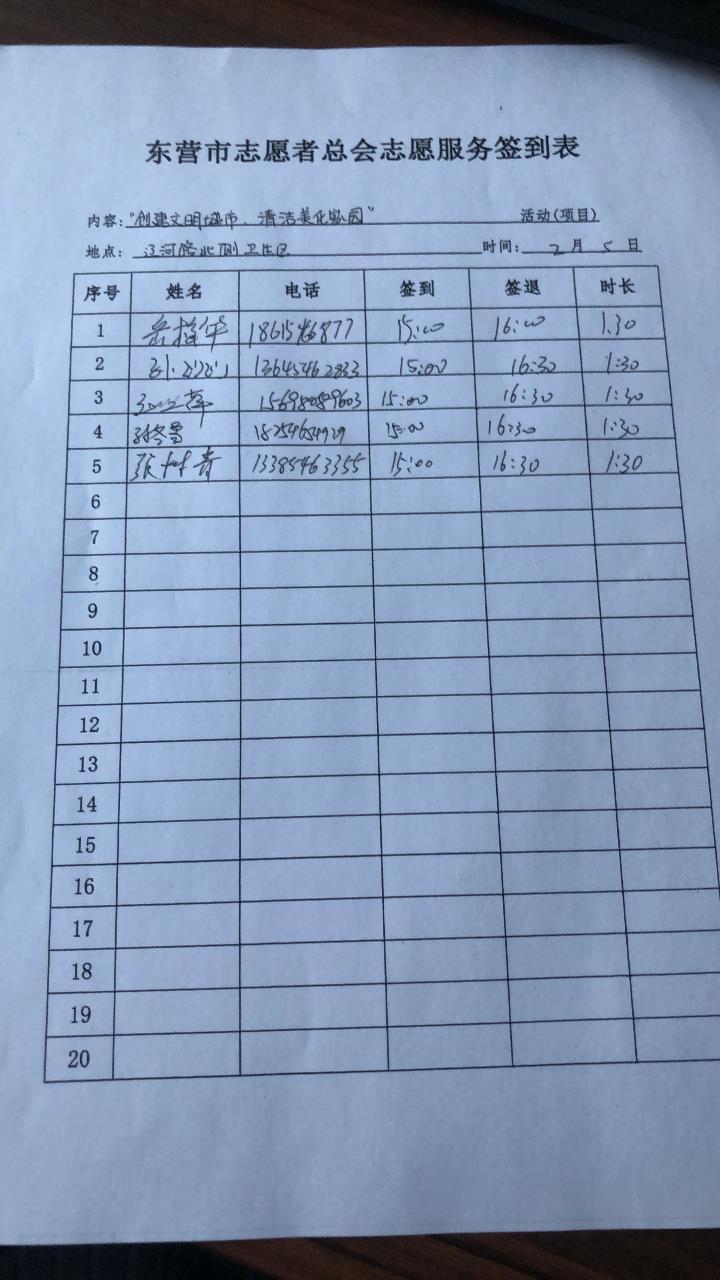 东营市志愿者总会志愿服务签到表
内容："创建文明城市、清洁美化家园" 活动(项目)
地点： 辽河路北侧卫生区 时间： 2 月 5 日
序号 姓名 电话 签到 签退 时长
1 15:00 16:00 1:30
2 13645462833 15:00 16:30 1:30
3 15698089603 15:00 16:30 1:30
4 15:00 16:30 1:30
5 张树青 13385463355 15:00 16:30 1:30
6
7
8
9
10
11
12
13
14
15
16
17
18
19
20